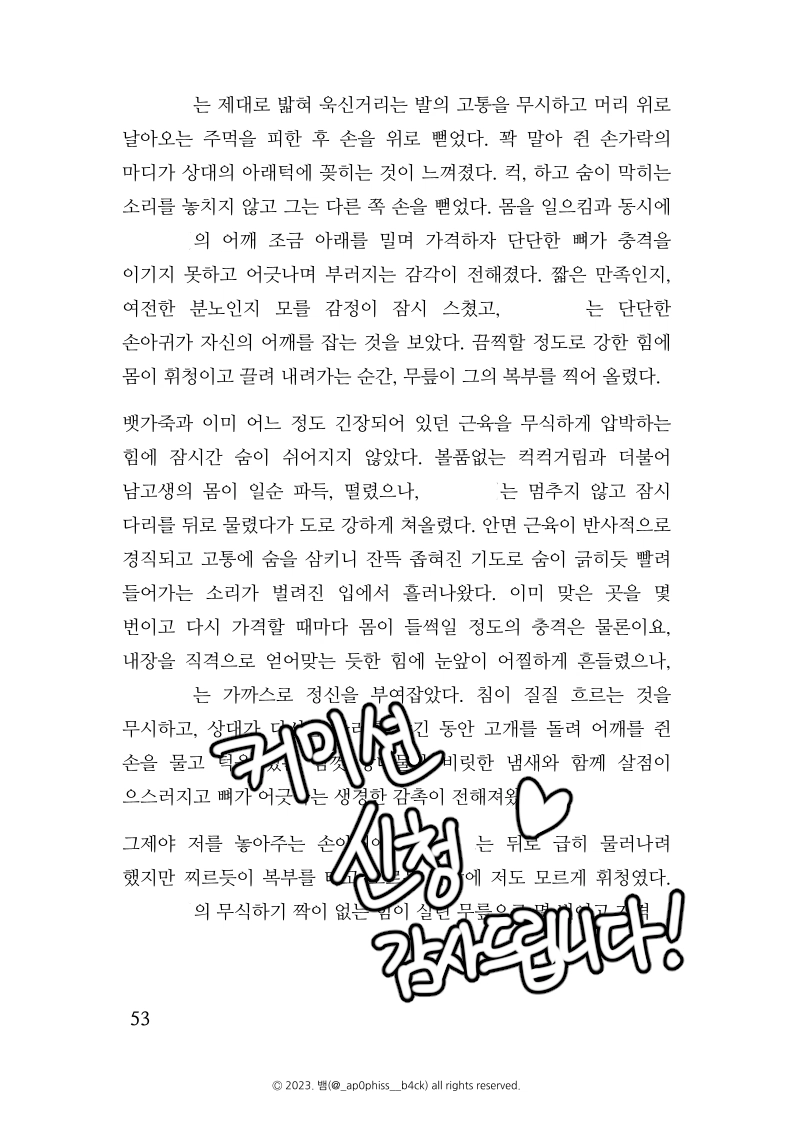 는 제대로 밟혀 욱신거리는 발의 고통을 무시하고 머리 위로
날아오는 주먹을 피한 후 손을 위로 뻗었다. 꽉 말아 쥔 손가락의
마디가 상대의 아래턱에 꽂히는 것이 느껴졌다. 컥, 하고 숨이 막히는
소리를 놓치지 않고 그는 다른 쪽 손을 뻗었다. 몸을 일으킴과 동시에
의 어깨 조금 아래를 밀며 가격하자 단단한 뼈가 충격을
이기지 못하고 어긋나며 부러지는 감각이 전해졌다. 짧은 만족인지,
여전한 분노인지 모를 감정이 잠시 스쳤고, 는 단단한
손아귀가 자신의 어깨를 잡는 것을 보았다. 끔찍할 정도로 강한 힘에
몸이 휘청이고 끌려 내려가는 순간, 무릎이 그의 복부를 찍어 올렸다.
뱃가죽과 이미 어느 정도 긴장되어 있던 근육을 무식하게 압박하는
힘에 잠시간 숨이 쉬어지지 않았다. 볼품없는 컥컥거림과 더불어
남고생의 몸이 일순 파득, 떨렸으나, 는 멈추지 않고 잠시
다리를 뒤로 물렸다가 도로 강하게 쳐올렸다. 안면 근육이 반사적으로
경직되고 고통에 숨을 삼키니 잔뜩 좁혀진 기도로 숨이 긁히듯 빨려
들어가는 소리가 벌려진 입에서 흘러나왔다. 이미 맞은 곳을 몇
번이고 다시 가격할 때마다 몸이 들썩일 정도의 충격은 물론이요,
내장을 직격으로 얻어맞는 듯한 힘에 눈앞이 어찔하게 흔들렸으나,
는 가까스로 정신을 부여잡았다. 침이 질질 흐르는 것을
무시하고, 상대가 동안 고개를 돌려 어깨를 쥔
손을 물고 비릿한 냄새와 함께 살점이
으스러지고 뼈가 생경한 감촉이
그제야 저를 놓아주는 는 뒤로 급히 물러나려
했지만 찌르듯이 복부를 저도 모르게 휘청였다.
의 무식하기 짝이 없는 힘이 실린 무릎으로
커미션
신청
감사드립니다!
53
© 2023. 뱀(@_ap0phiss__b4ck) all rights reserved.